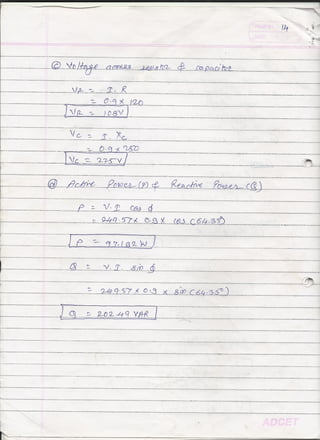 14
© Voltage across resistor & capacitor
VR = I. R
= 0.9 x 120
VR = 108V
Vc = I. Xc
= 0.9 x 250
Vc = 225V
(d) Active Power (P) & Reactive Power (Q)
P = V. I cos ϕ
= 249.57 x 0.9 x cos (64.35°)
P = 97.182 W
Q = V. I. sin ϕ
= 249.57 x 0.9 x sin (64.35°)
Q = 202.49 VAR
ADCET